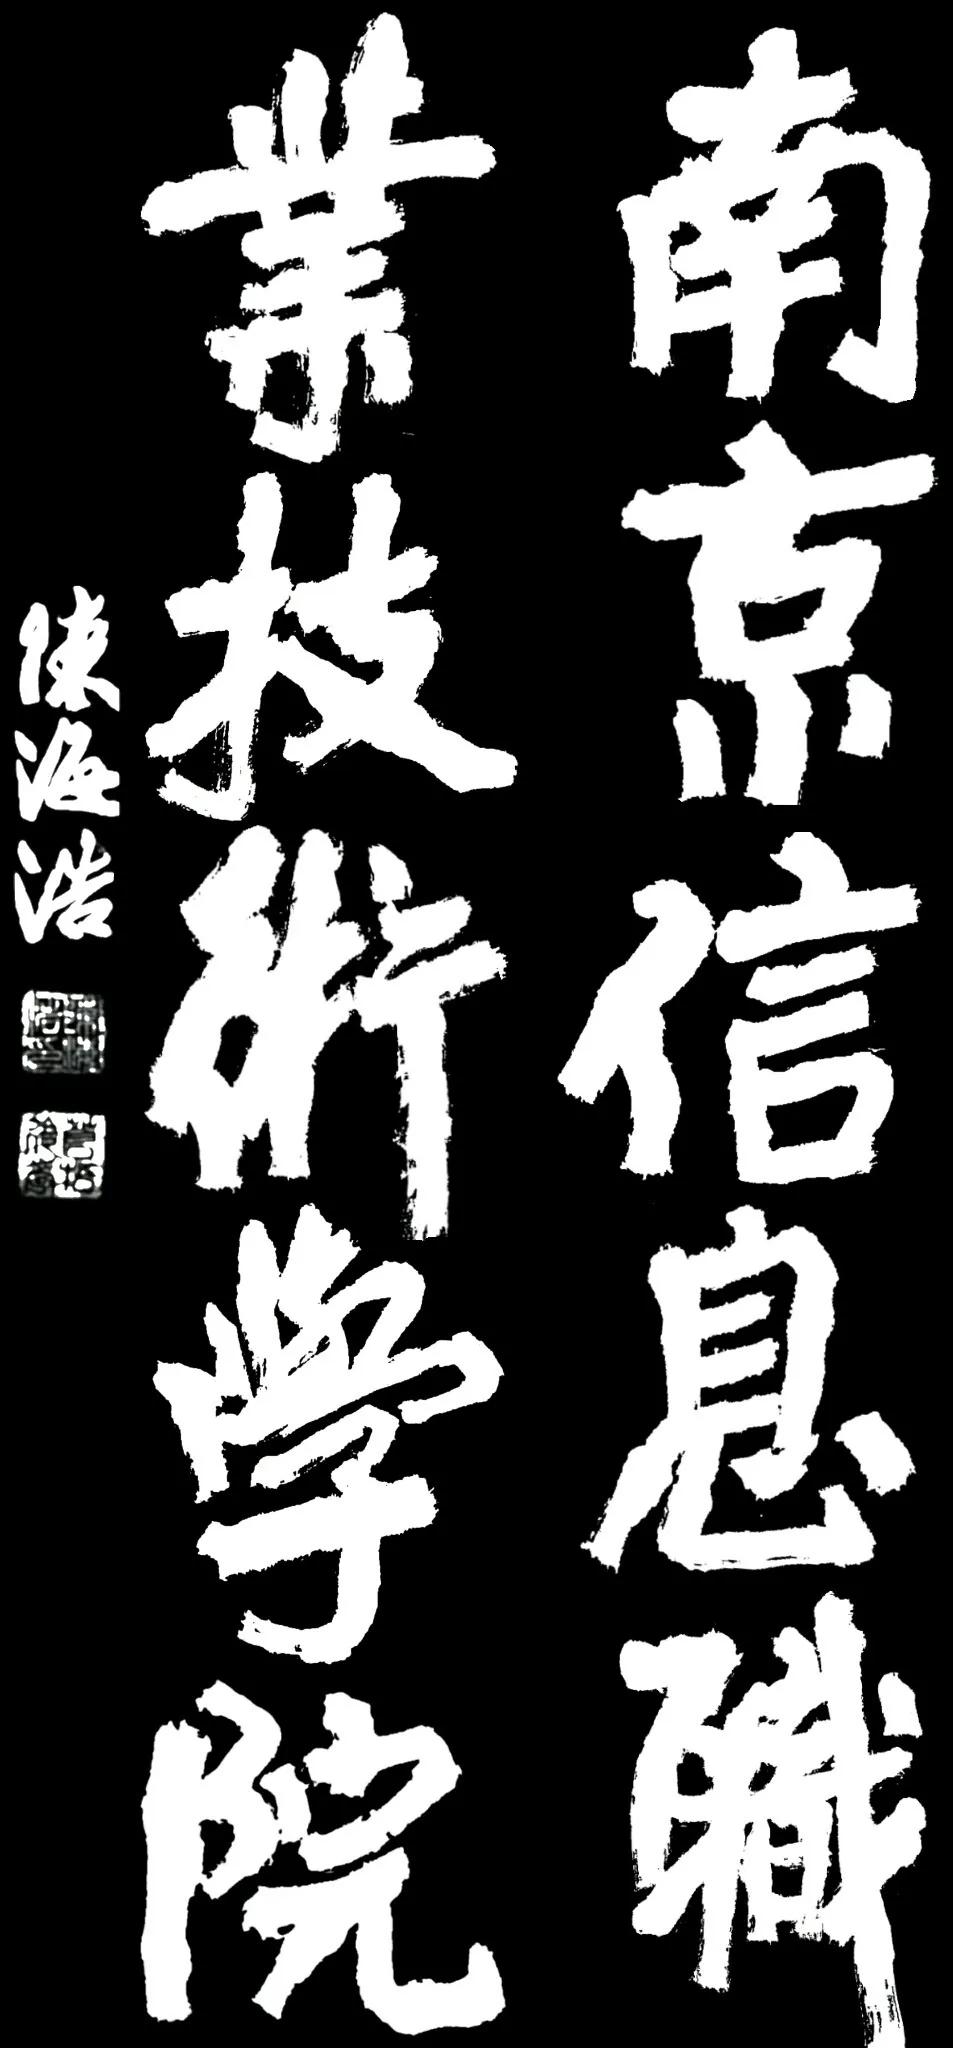 南京信息職
業技術学院
陳海浩